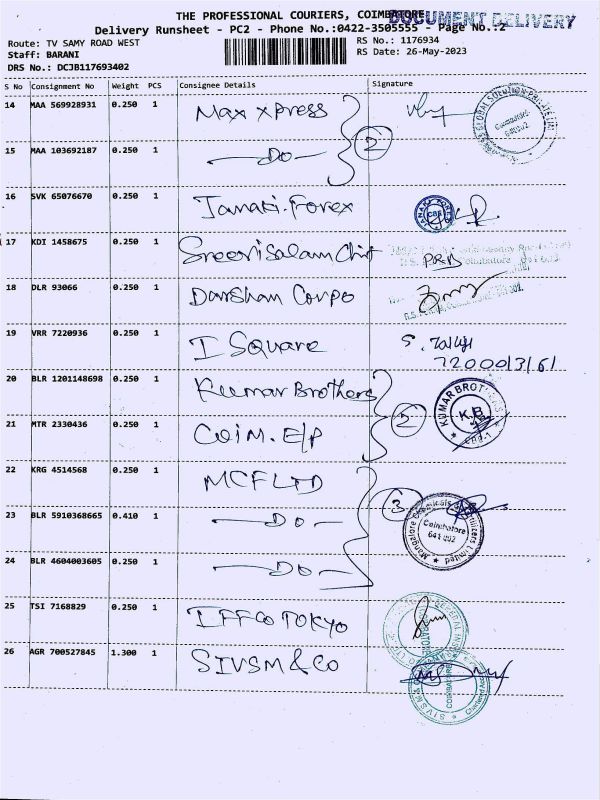 THE PROFESSIONAL COURIERS, COIMBATORE
DOCUMENT DELIVERY
Delivery Runsheet - PC2 - Phone No.:0422-3505555 - Page No.:2
Route: TV SAMY ROAD WEST
RS No.: 1176934
Staff: BARANI
RS Date: 26-May-2023
DRS No.: DCJB117693402
S No Consignment No Weight PCS Consignee Details Signature
14 MAA 569928931 0.250 1 Max xpress
2
15 MAA 103692187 0.250 1 —Do—
16 SVK 65076670 0.250 1 Janaki.Forex
17 KDI 1458675 0.250 1 Sreevisalam Chit
18 DLR 93066 0.250 1 Darshan Corpo
19 VRR 7220936 0.250 1 I Square
20 BLR 1201148698 0.250 1 Kumar Brothers
2
KUMAR BROTHERS
K.B
CBE-1
21 MTR 2330436 0.250 1 Coim. E/P
22 KRG 4514568 0.250 1 MCFLTD
3
Mangalore Chemicals & Fertilizers Limited
Coimbatore
641 002
23 BLR 5910368665 0.410 1 —Do—
24 BLR 4604003605 0.250 1 —Do—
25 TSI 7168829 0.250 1 IFFCO TOKYO
26 AGR 700527845 1.300 1 SIVSM & CO